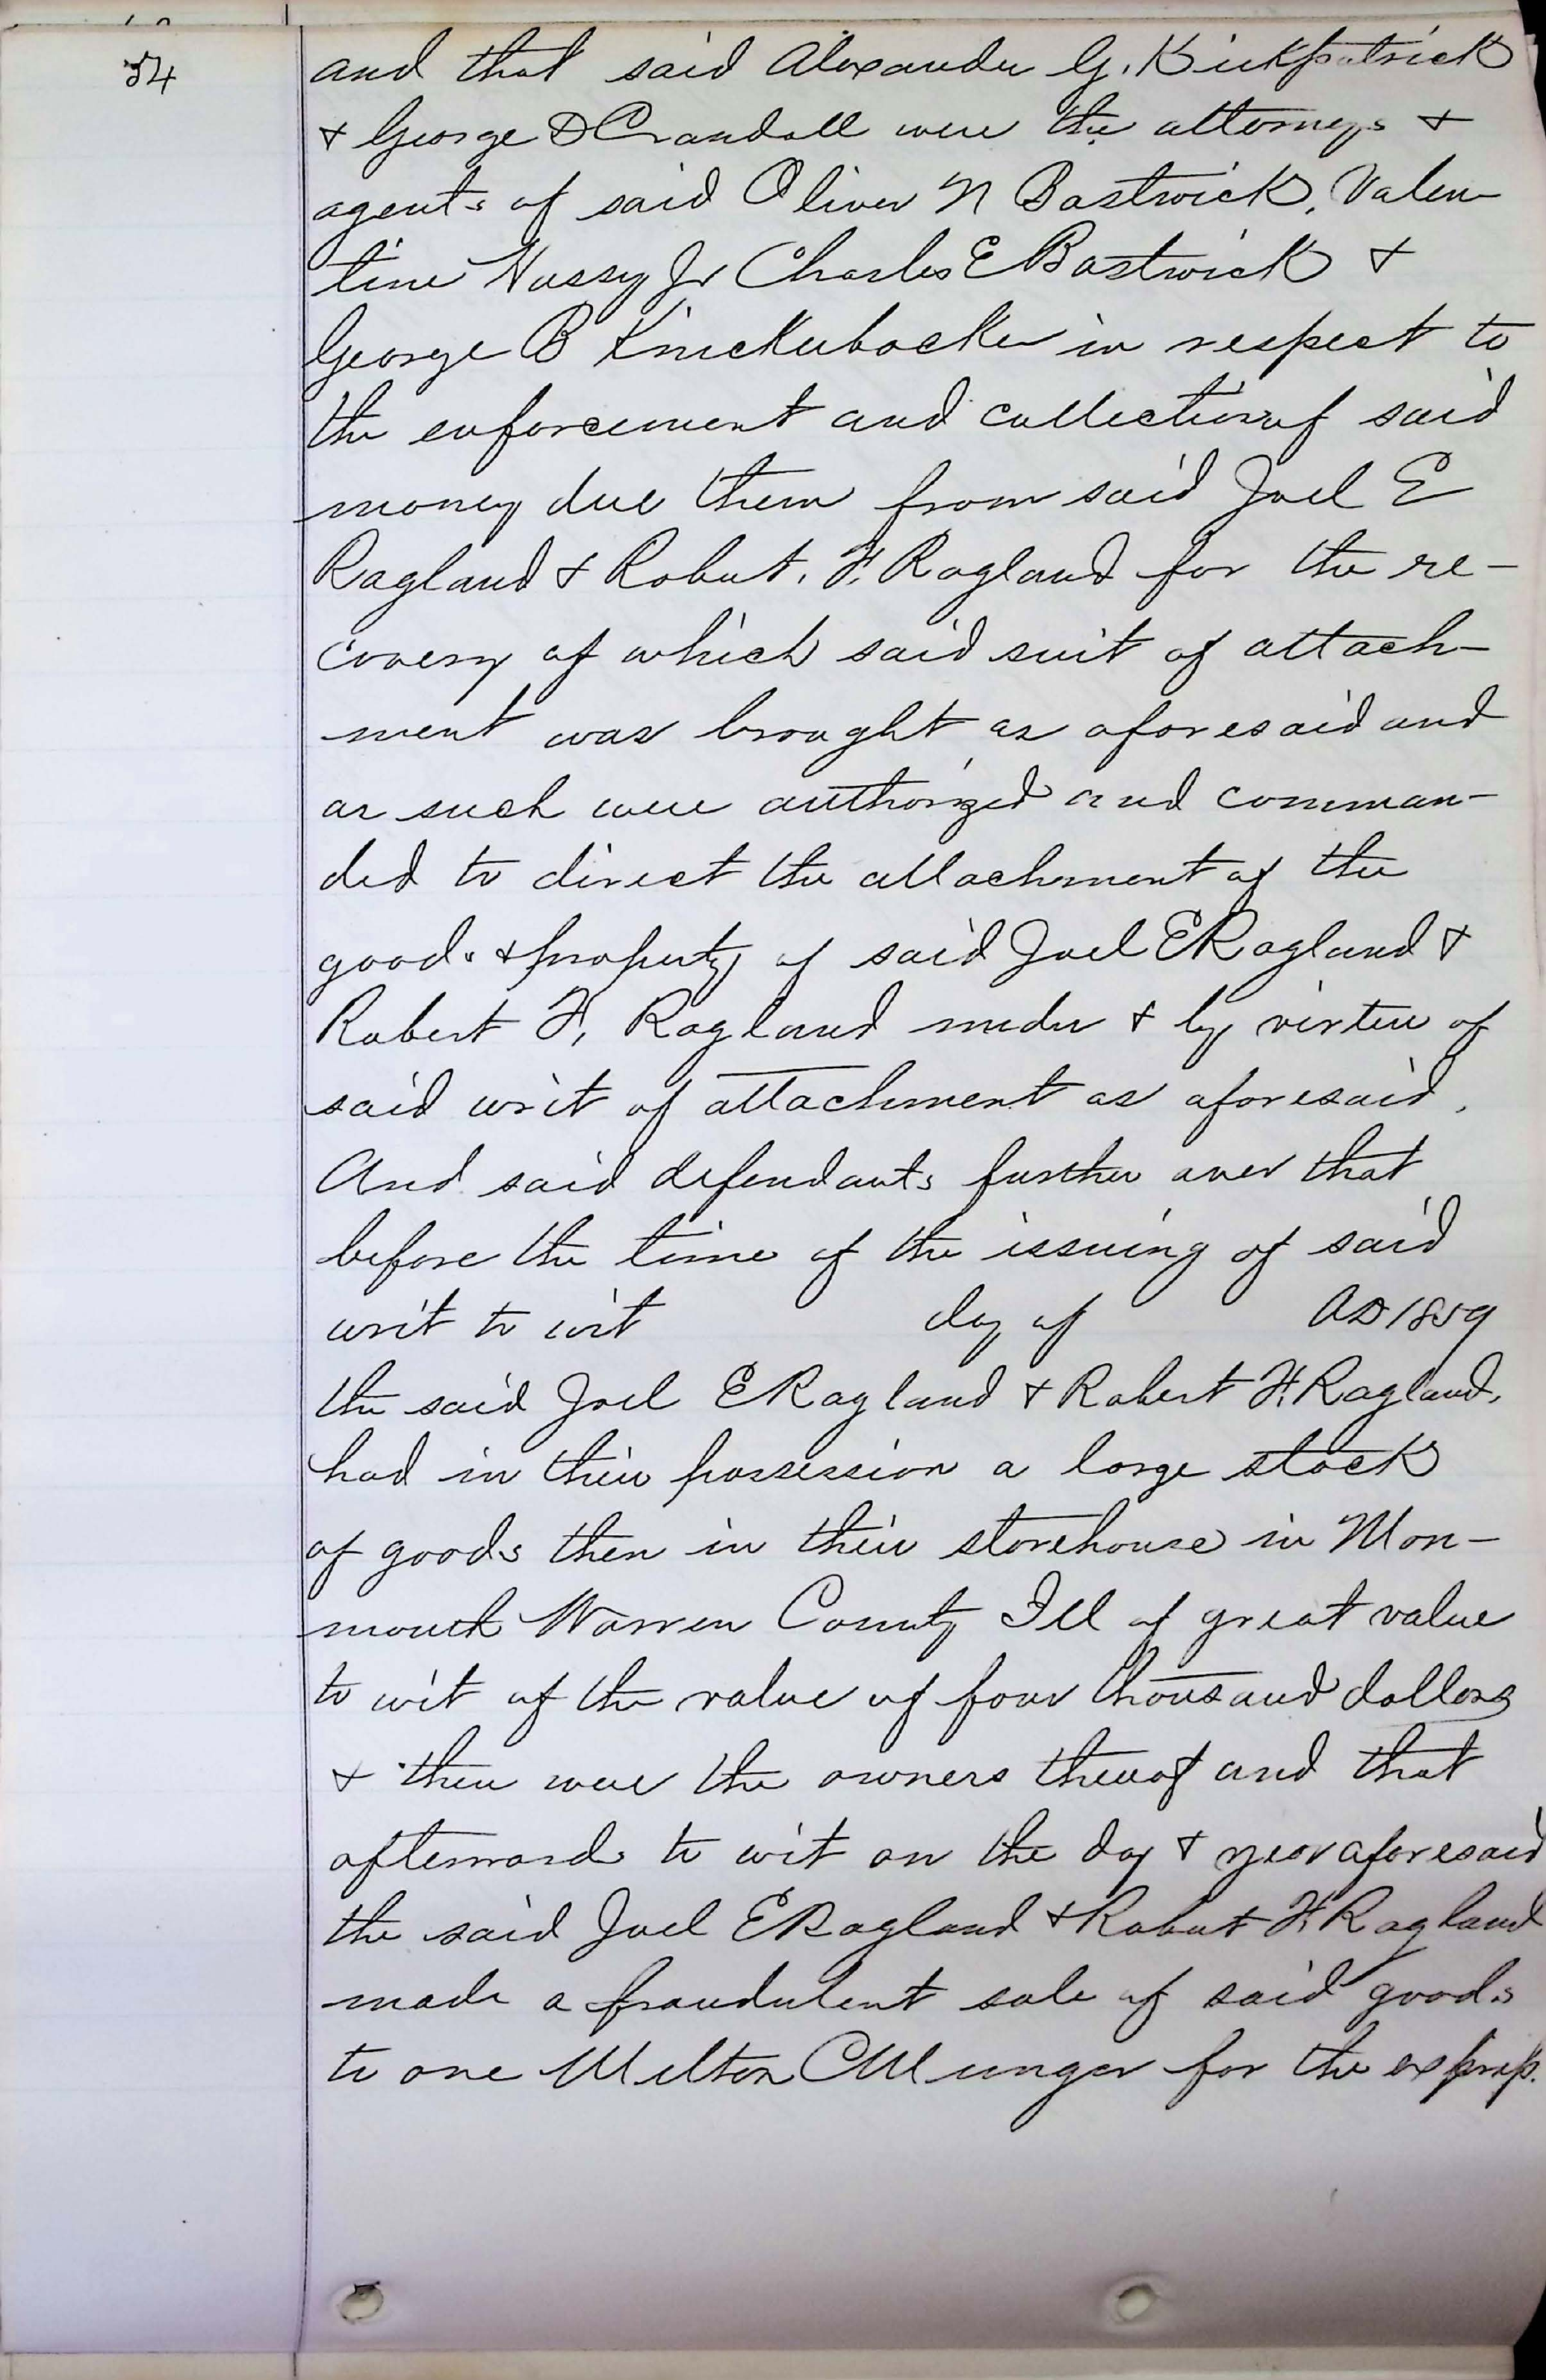 54
and that said Alexander G. Kirkpatrick
& George D Crandall were the attorneys &
agents of said Oliver N Bostwick, Valen-
tine Hussy Jr Charles E Bostwick &
George B Knickerbocker in respect to
the enforcement and collection of said
money due them from said Joel E
Ragland & Robert. F. Ragland for the re-
covery of which said suit of attach-
ment was brought as aforesaid and
as such were authorized and comman-
ded to direct the attachment of the
goods & property of said Joel E Ragland &
Robert F. Ragland under & by virtue of
said writ of attachment as aforesaid.
And said defendants further aver that
before the time of the issuing of said
writ to wit day of AD 1859
the said Joel E Ragland & Robert F. Ragland,
had in their possession a large stock
of goods then in their storehouse in Mon-
mouth Warren County Ill of great value
to wit of the value of four thousand dollars
& then were the owners thereof and that
afterwards to wit on the day & year aforesaid
the said Joel E Ragland & Robert F. Ragland
made a fraudulent sale of said goods
to one Milton C Munger for the